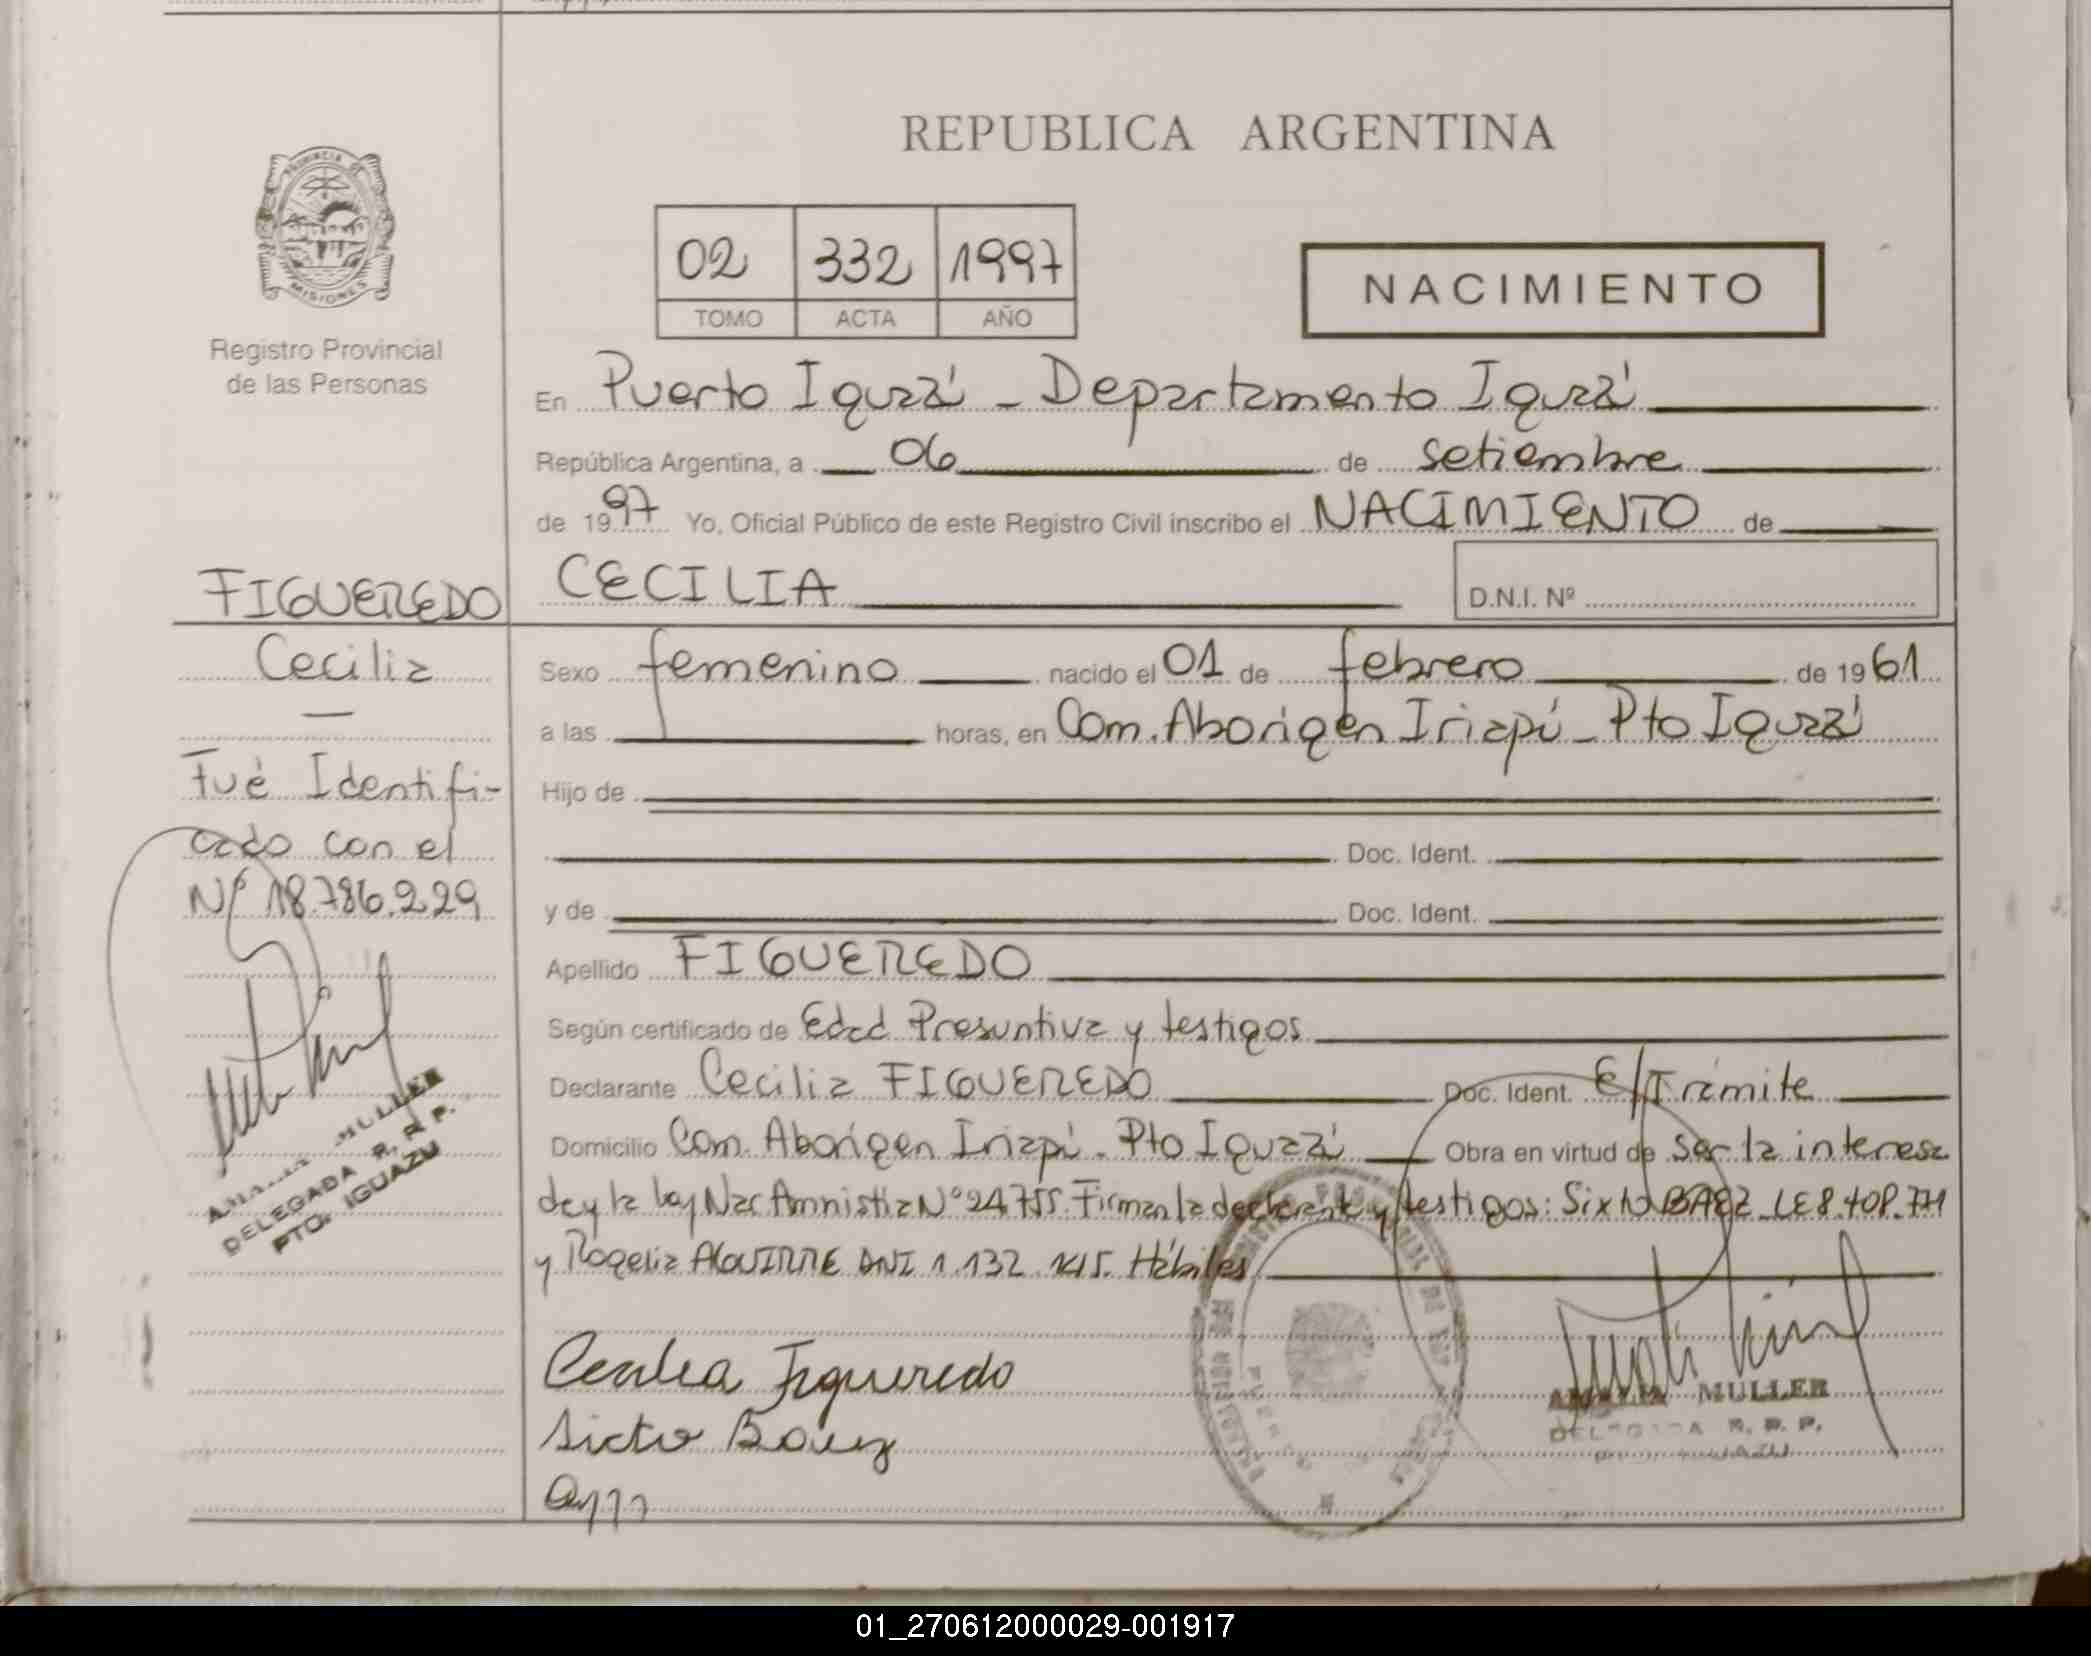 REPUBLICA ARGENTINA
PROVINCIA DE
MISIONES
Registro Provincial
de las Personas
02 332 1997
TOMO ACTA AÑO
NACIMIENTO
En Puerto Iguazú - Departamento Iguazú
República Argentina, a 06 de setiembre
de 1997 Yo, Oficial Público de este Registro Civil inscribo el NACIMIENTO de
CECILIA D.N.I. Nº
FIGUEREDO
Cecilia
Fué Identifi-
cado con el
Nº 18.786.229
MULLER
DELEGADA R. R. P.
PTO. IGUAZU
Sexo femenino nacido el 01 de febrero de 1961
a las horas, en Com. Aborigen Iriapú - Pto Iguazú
Hijo de
Doc. Ident.
y de Doc. Ident.
Apellido FIGUEREDO
Según certificado de Edad Presuntiva y testigos
Declarante Cecilia FIGUEREDO Doc. Ident. E/Trámite
Domicilio Com. Aborigen Iriapú - Pto Iguazú Obra en virtud de ser la interesa
da y la ley Nac Amnistia Nº 24.755. Firman la declarante y testigos: Sixto BAEZ LE 8.408.771
y Rogelia AGUIRRE DNI 1.132.145. Hábiles
Cecilia Figueredo
Sicto Baez
MULLER
R. R. P.
01_270612000029-001917